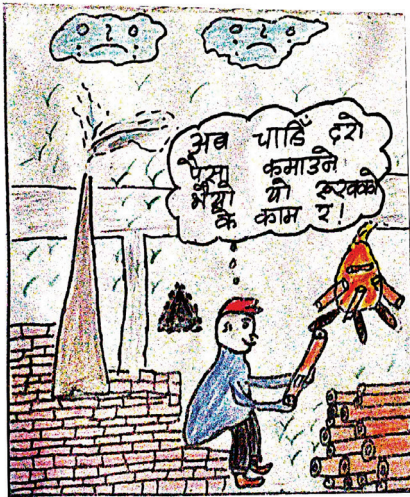 अब चाडैँ दरो
पैसा कमाउने
भैयो यो रूखको
के काम र!